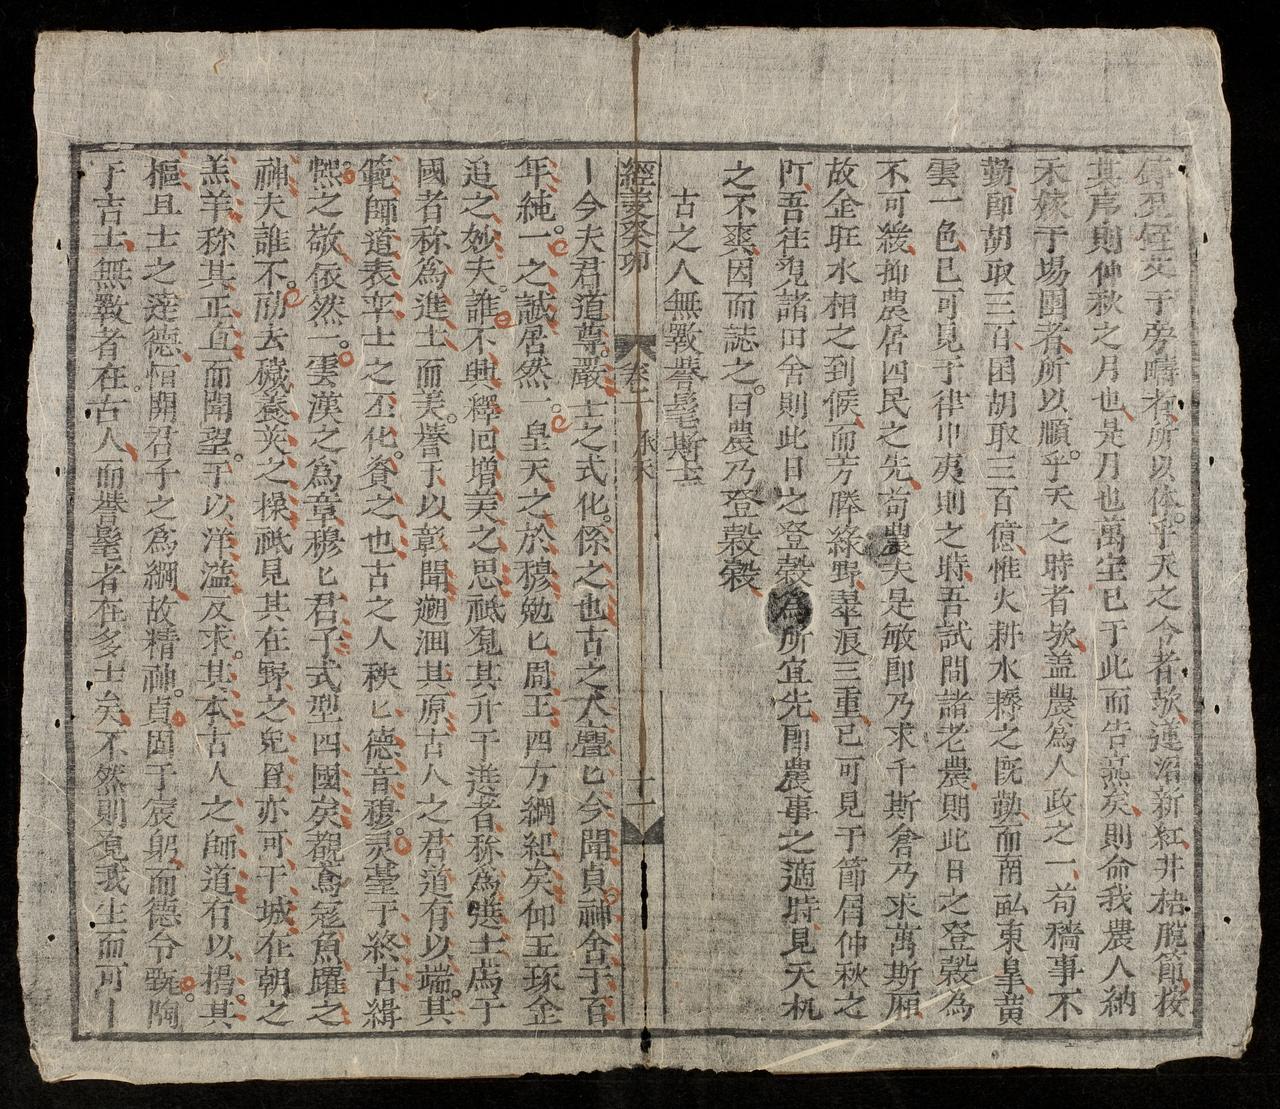 其序則仲秋之月也是月也萬宝已于此而告蒸矣則命我農人納
禾嫁于場圃者所以順乎天之時者欤盖農為人政之一苟穡事不
勤即胡取三百囷胡取三百億惟火耕水耨之既勤而南畆東皐黄
雲一色已可見于律中夷則之時吾試問諸老農則此日之登穀為
不可緩抑農居四民之先苟農夫是敏即乃求千斯倉乃求萬斯厢
故企旺水相之到候而芳塍綠野翠浪三重已可見于節届仲秋之
吾往覌諸田舍則此日之登穀為所宜先即農事之適時見天机
之不爽因而誌之曰農乃登穀穀
古之人無斁譽髦斯士
經義癸卯
卷二
十一
今夫君道尊嚴士之式化係之也古之人亹匕今聞貞神舍于百
年純一之誠居然一皇天之於穆勉匕周王四方綱紀矣仰玉琢金
追之妙夫誰不興釋回增美之思祗覓其升于進者称為進士焉于
國者称為進士而美譽于以彰聞遡洄其原古人之君道有以端其
範師道表率士之丕化資之也古之人秩匕德音穆灵臺于終古緝
熙之敬依然一雲漢之為章穆匕君子式型四國矣覩鳶冠魚躍之
神夫誰不劀去穢養英之操祗見其在野之兎罝亦可干城在朝之
羔羊称其正直而聞望于以洋溢反求其本古人之師道有以揚其
樞且士之達德恒關君子之為綱故精神貞固于宸躬而德令甄陶
于吉士無斁者在古人而譽髦者在多士矣不然則覓我生而可